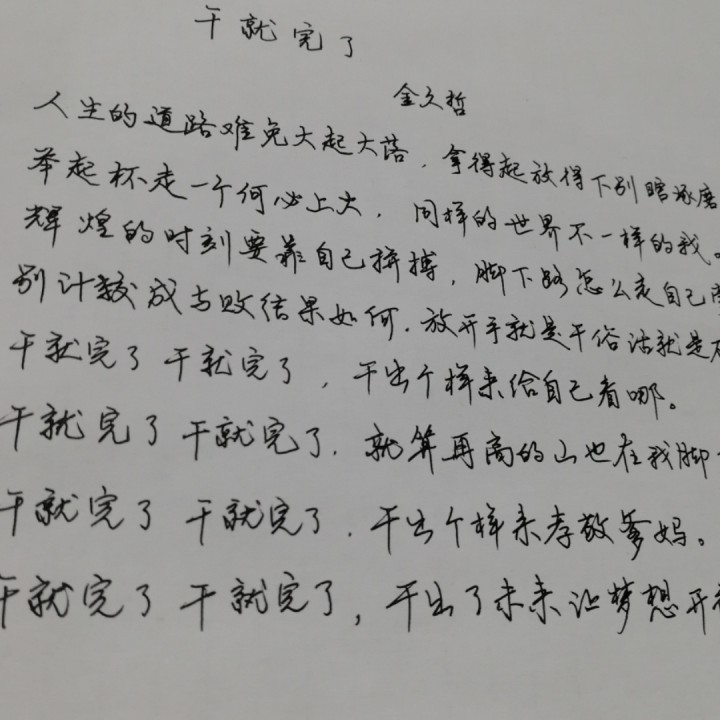 干就完了
金久哲
人生的道路难免大起大落，拿得起放得下别瞎琢磨
举起杯走一个何必上火，同样的世界不一样的我。
辉煌的时刻要靠自己拼搏，脚下路怎么走自己
别计较成与败结果如何．放开手就是干俗话就是
干就完了 干就完了，干出个样来给自己看哪。
干就完了 干就完了．就算再高的山也在我脚
干就完了 干就完了．干出个样来孝敬爹妈。
干就完了 干就完了，干出了未来让梦想开